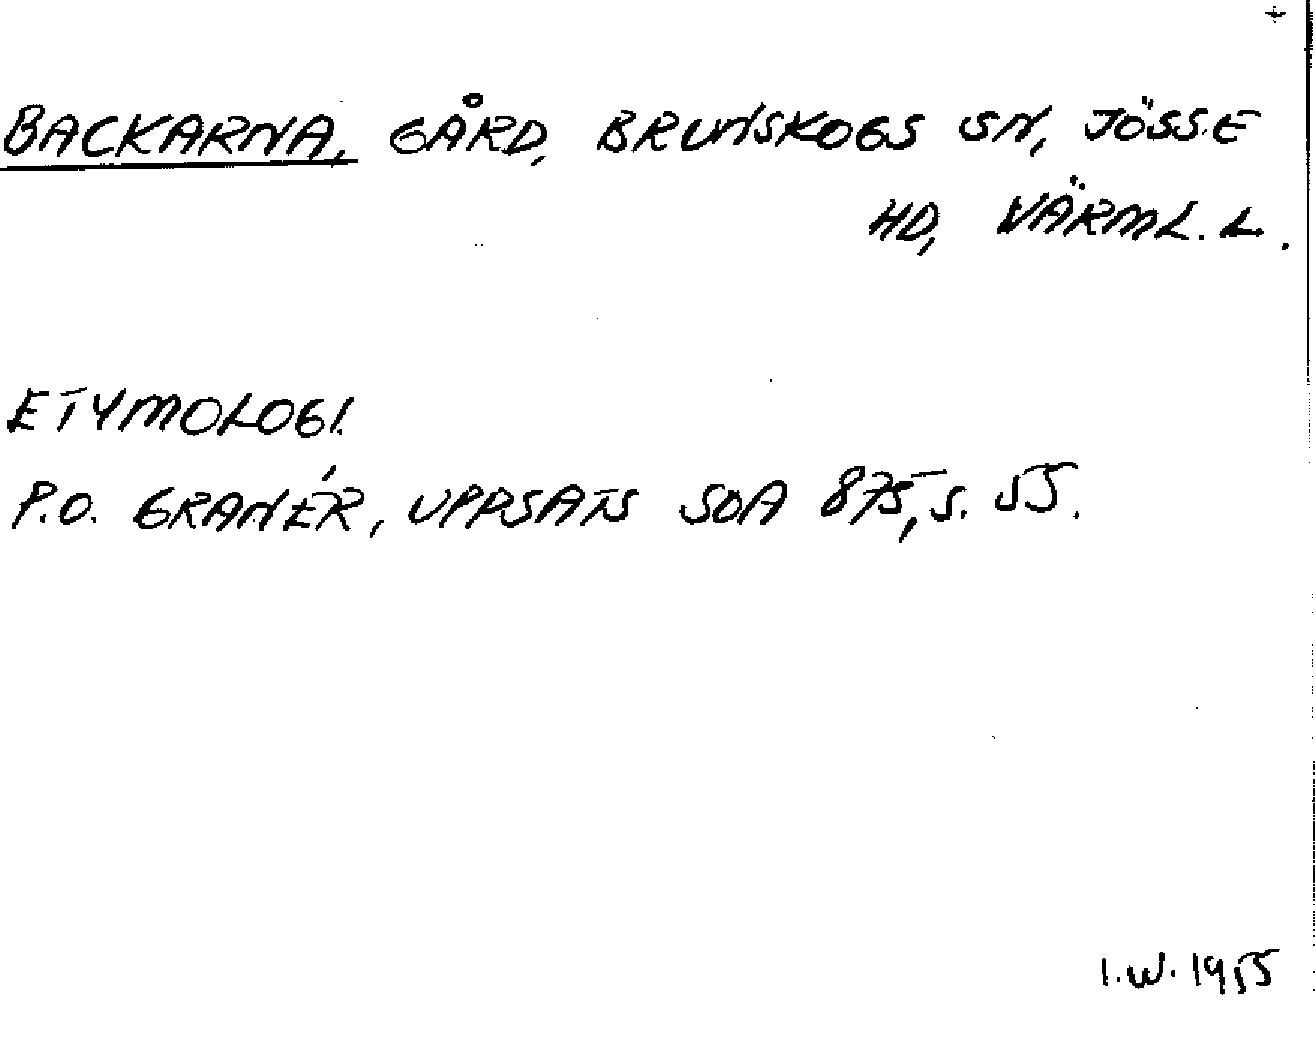 BACKARNA, GÅRD, BRUNSKOGS SN, JÖSSE
HD, VÄRML. L.
ETYMOLOGI.
P.O. GRANÉR, UPPSATS SOA 875, S. 55.
I.W. 1955